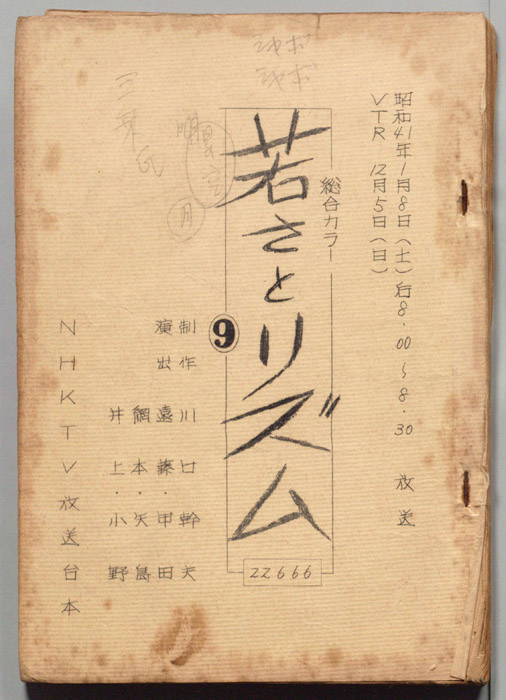 昭和41年1月8日(土)后8.00〜8.30 放送
VTR 12月5日(日)
総合カラー
若さとリズム
9
22666
制作 川口幹夫
演出 遠藤・甲田
網本・矢島
井上・小野
NHKTV放送台本